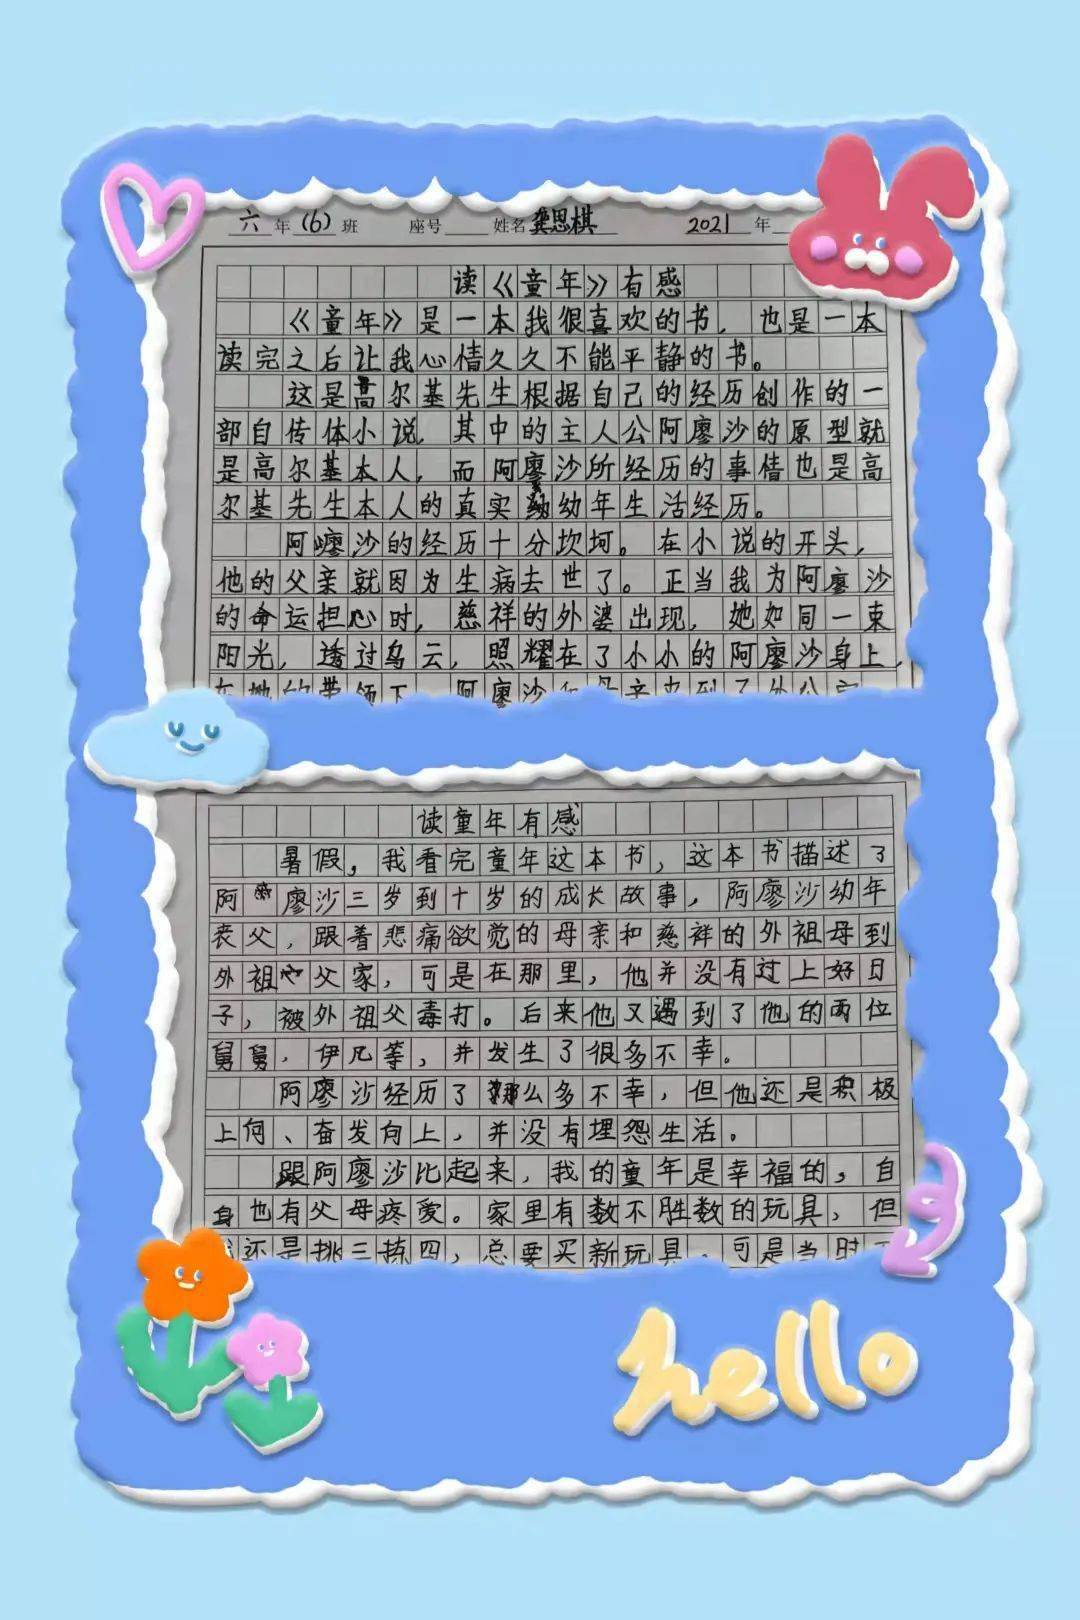 六年(6)班 座号 姓名龚思棋 2021年
读《童年》有感
《童年》是一本我很喜欢的书，也是一本
读完之后让我心情久久不能平静的书。
这是高尔基先生根据自己的经历创作的一
部自传体小说，其中的主人公阿廖沙的原型就
是高尔基本人，而阿廖沙所经历的事情也是高
尔基先生本人的真实幼年生活经历。
阿廖沙的经历十分坎坷。在小说的开头，
他的父亲就因为生病去世了。正当我为阿廖沙
的命运担心时，慈祥的外婆出现，她如同一束
阳光，透过乌云，照耀在了小小的阿廖沙身上，
在她的带领下，阿廖沙和母亲来到了外公家
读童年有感
暑假，我看完童年这本书，这本书描述了
阿廖沙三岁到十岁的成长故事，阿廖沙幼年
丧父，跟着悲痛欲觉的母亲和慈祥的外祖母到
外祖父家，可是在那里，他并没有过上好日
子，被外祖父毒打。后来他又遇到了他的两位
舅舅，伊凡等，并发生了很多不幸。
阿廖沙经历了那么多不幸，但他还是积极
上向、奋发向上，并没有埋怨生活。
跟阿廖沙比起来，我的童年是幸福的，自
身也有父母疼爱。家里有数不胜数的玩具，但
我还是挑三拣四，总要买新玩具，可是当时
hello